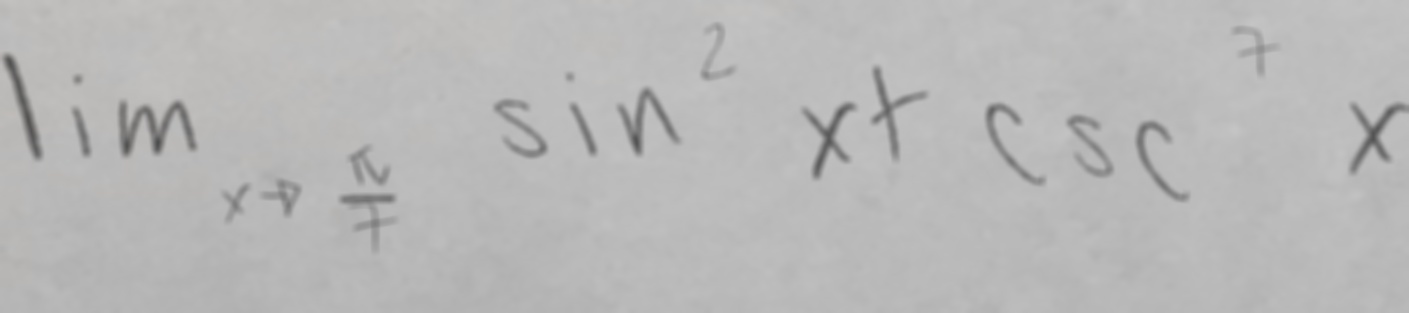 lim_{x→\frac{π}{7}} sin^2 x + csc^7 x